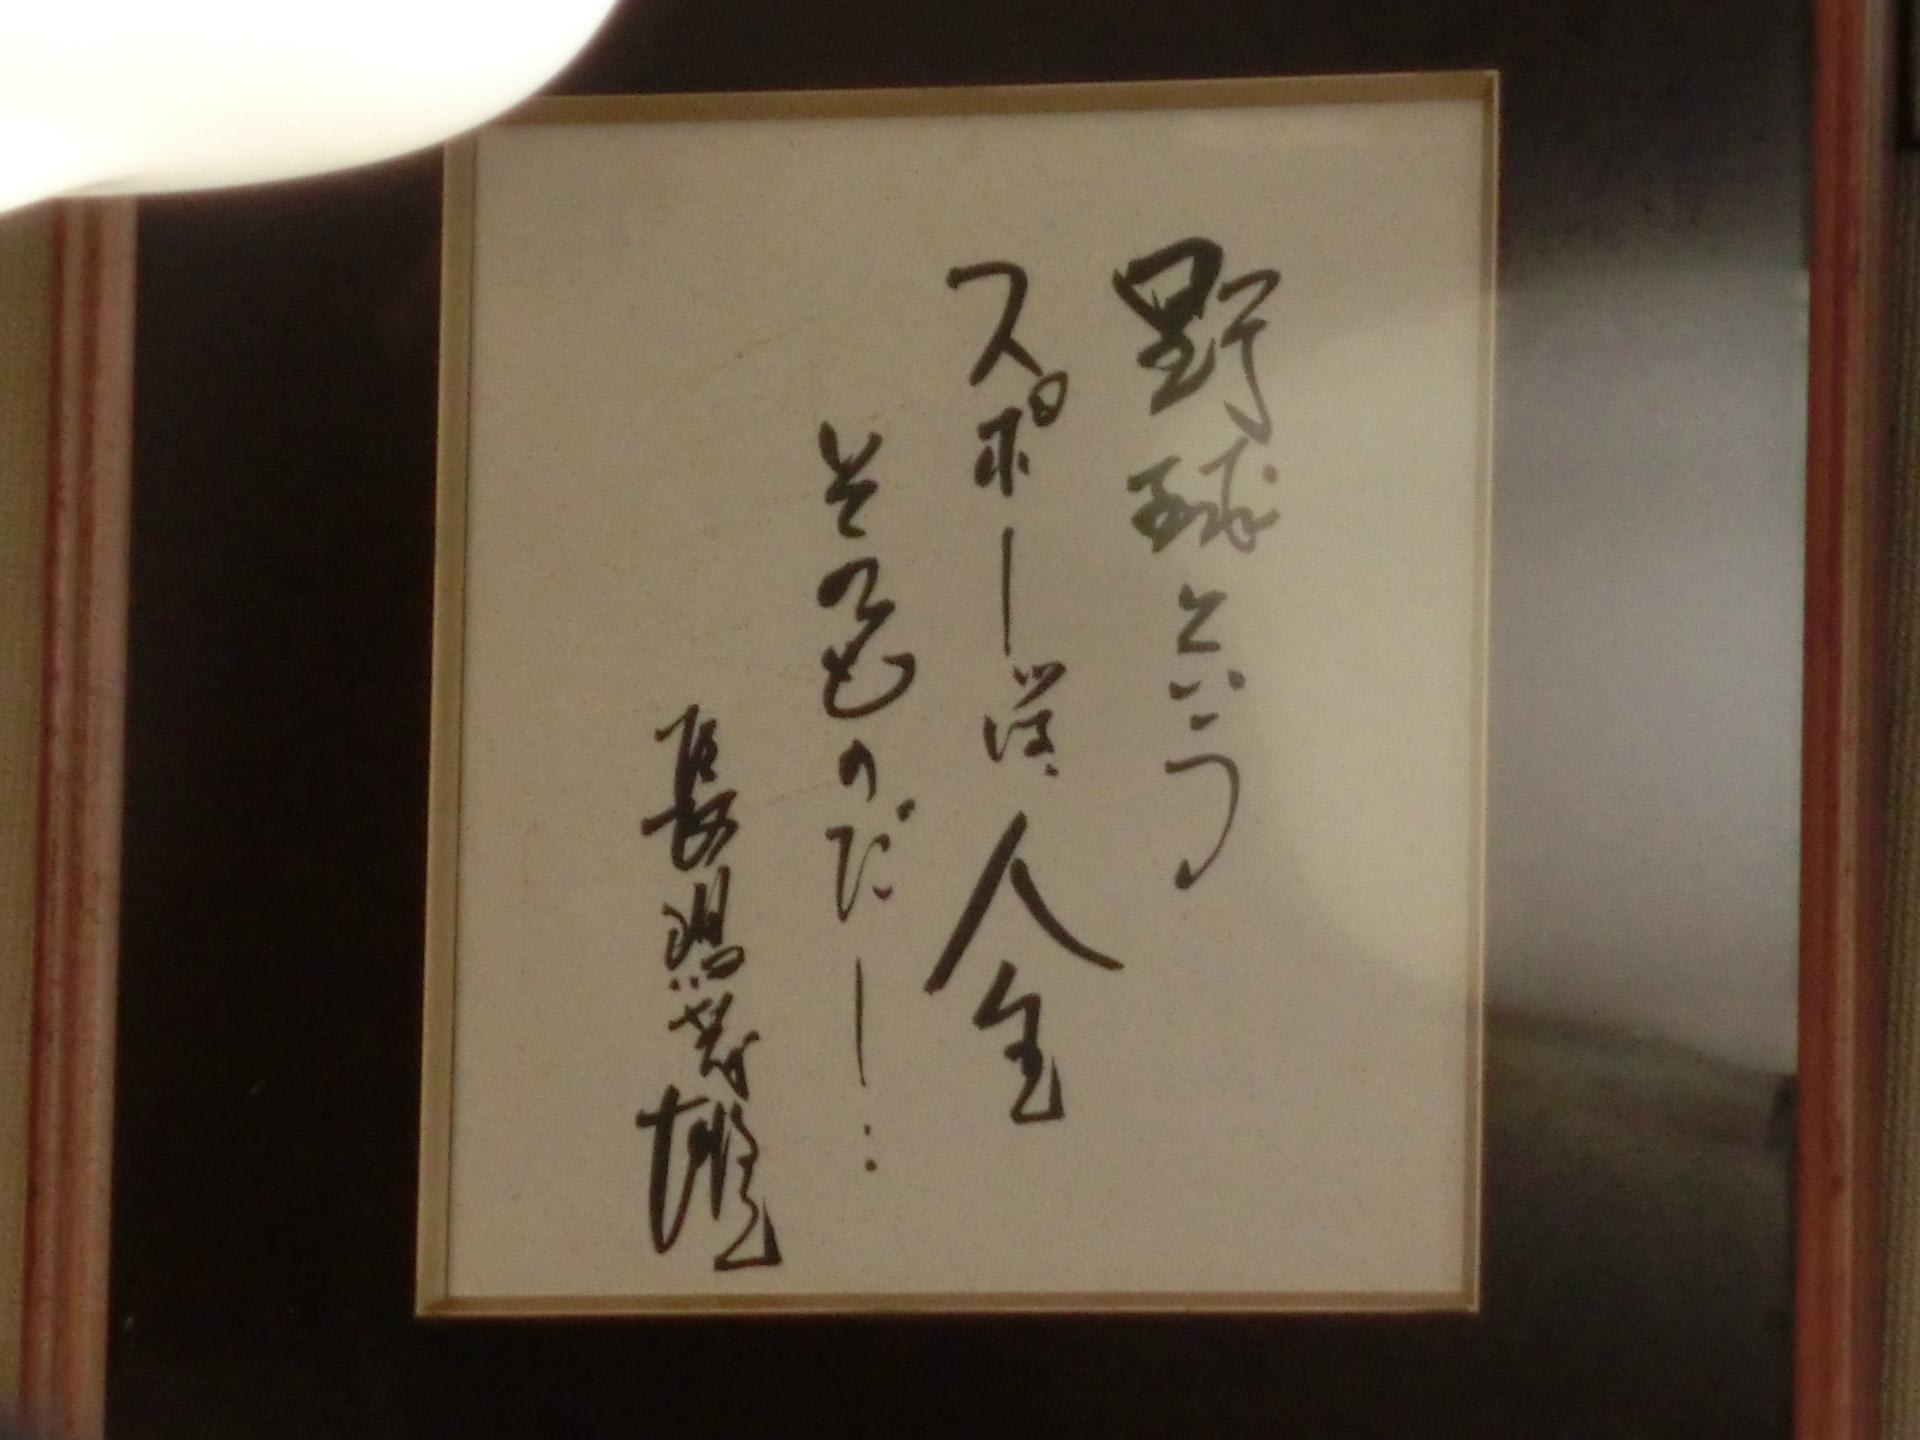 野球という
スポーツは人生
そのものだ―‥
長嶋茂雄